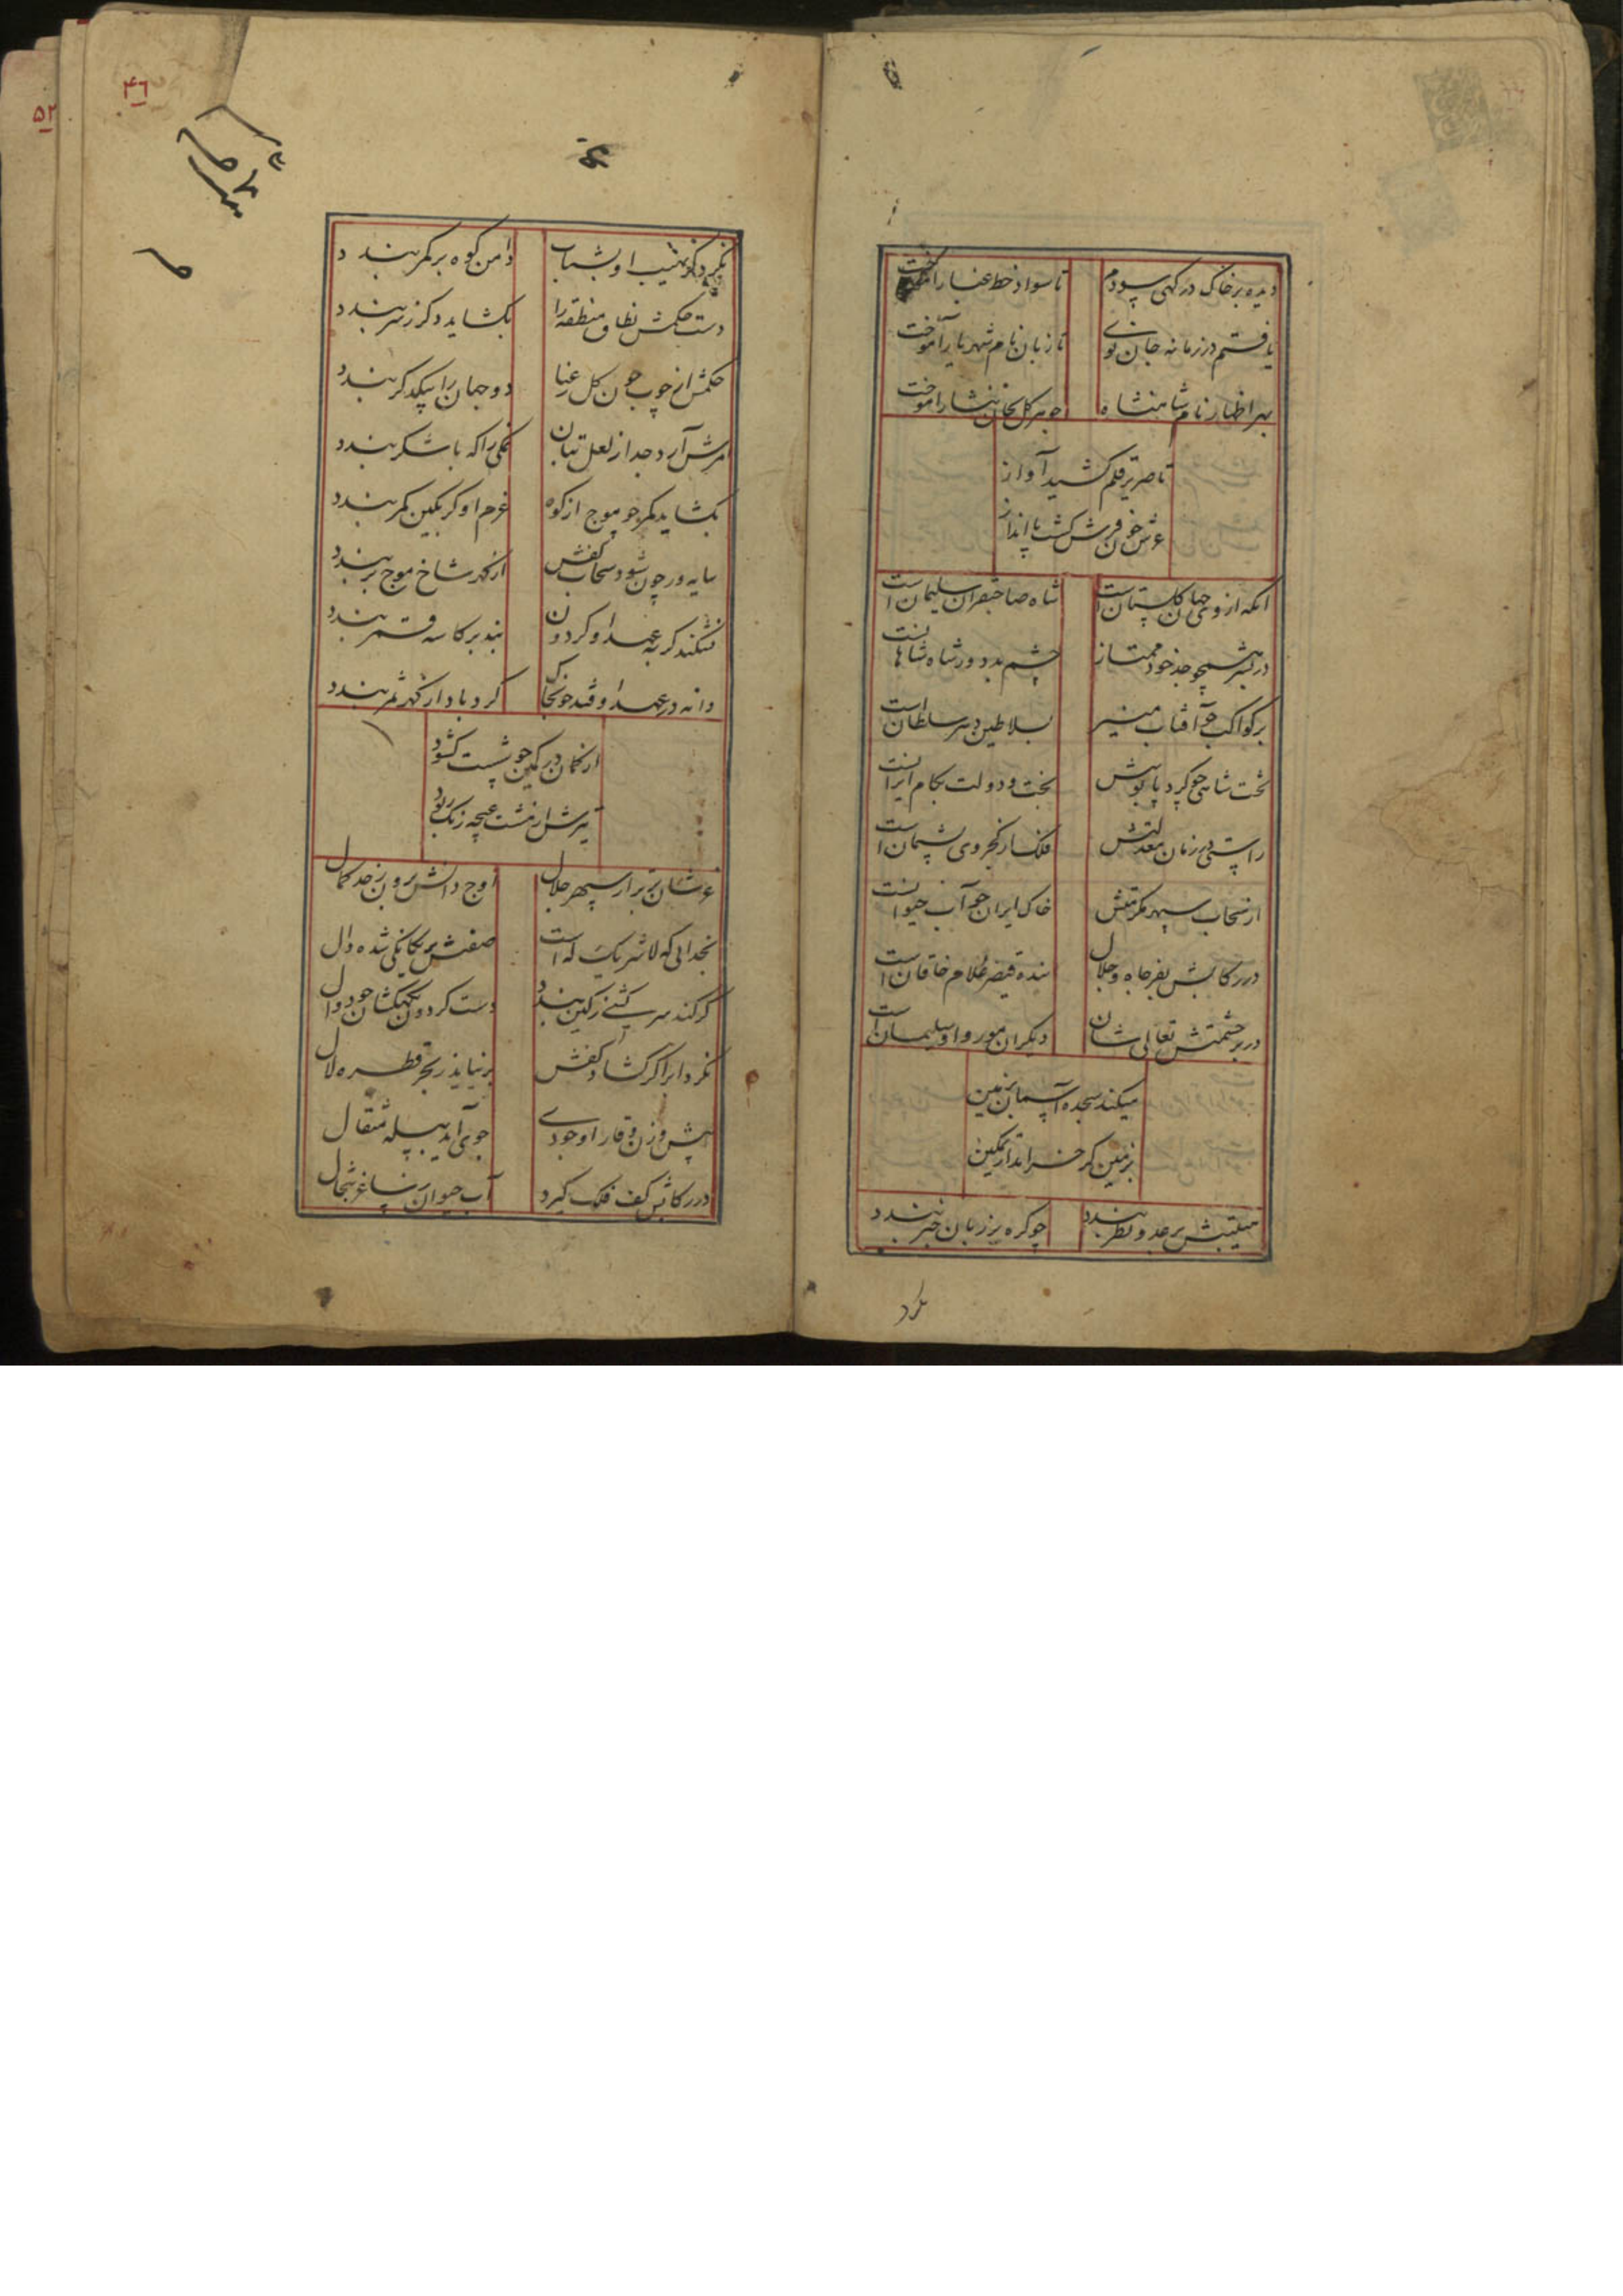 دیده بر خاک درکهی سودم
تا سواد خط غبار آموخت
یافتم در زمانه جان نوی
تا زبان نام شهریار آموخت
بهر اظهار نام شاهنشاه
تا صریر قلم کشید آواز
عرش خون فرش کشت پا انداز
انکه از وی جهان کلستان است
شاه صاحبقران سلیمان است
در بشر همچو جد خود ممتاز
چشم بد دور شاه شاهانست
بر کواکب چو آفتاب منیر
بسلاطین دهر سلطان است
تخت شاهی چو کرد پابوسش
بخت و دولت بکام ایرانست
راستی در زمان معدلتش
فلک از کجروی پشیمان است
از سحاب سپهر مکرمتش
خاک ایران چو آب حیوانست
در رکابش بفر جاه و جلال
بنده قیصر غلام خاقان است
در بر حشمتش تعالی شان
دیکران مور و او سلیمان است
میکند سجده آسمان بزمین
بزمین کر خرامد از تمکین
هیبتش بر عدو نظر بندد
چو کره بر زبان خبر بندد
نکرد
۴٦
۵۲
نکرد کر نهیب او بشتاب
دامن کوه بر کمر بندد
دست حکمش نطاق منطقه را
بکشاید دکر ز سر بندد
حکمش از چوب چون کل رعنا
دو جهان را بیکدکر بندد
امرش آرد جدا ز لعل بتان
نمکی را که با شکر بندد
بکشاید کمر چو موج از کوه
عزم او کر بکین کمر بندد
سایه ور چون شود سحاب کفش
از کهر شاخ موج بر بندد
نشکند کر به عهد او کردون
بند بر کاسه قمر بندد
دانه در عهد او فتد چو بخاک
کرد باد از کهر ثمر بندد
از کمان در کمین چو شست کشود
تیرش از مشت غنچه رنک ربود
عز شان برتر از سپهر جلال
اوج دانش برون ز حد کمال
بخدایی که لا شریک له است
صفتش بر یکانکی شده دال
کر کند سرکشی ز کین بندد
دست کردون بکهکشان چو دوال
نکرد ابر اکر کشاد کفش
بر نیاید ز بحر قطره لال
پیش وزن وقار او جودی
در رکابش کف فلک کیرد
آب حیوان بساغر تبخال